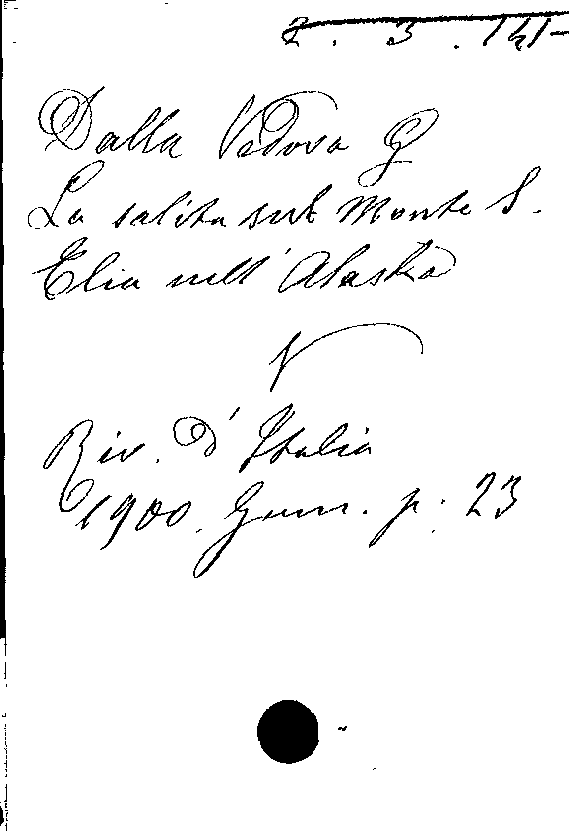 2. 3. 141-
Dalla Vedova G
La salita sul Monte S.
Elia nell' Alaska
V
Riv. d' Italia
1900. Genn. p. 23